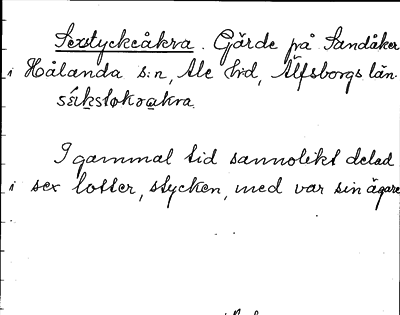 Sexstyckeåkra. Gärde på Sandåker
i Hålanda s:n, Ale hd, Älfsborgs län.
I gammal tid sannolikt delad
i sex lotter, stycken, med var sin ägare